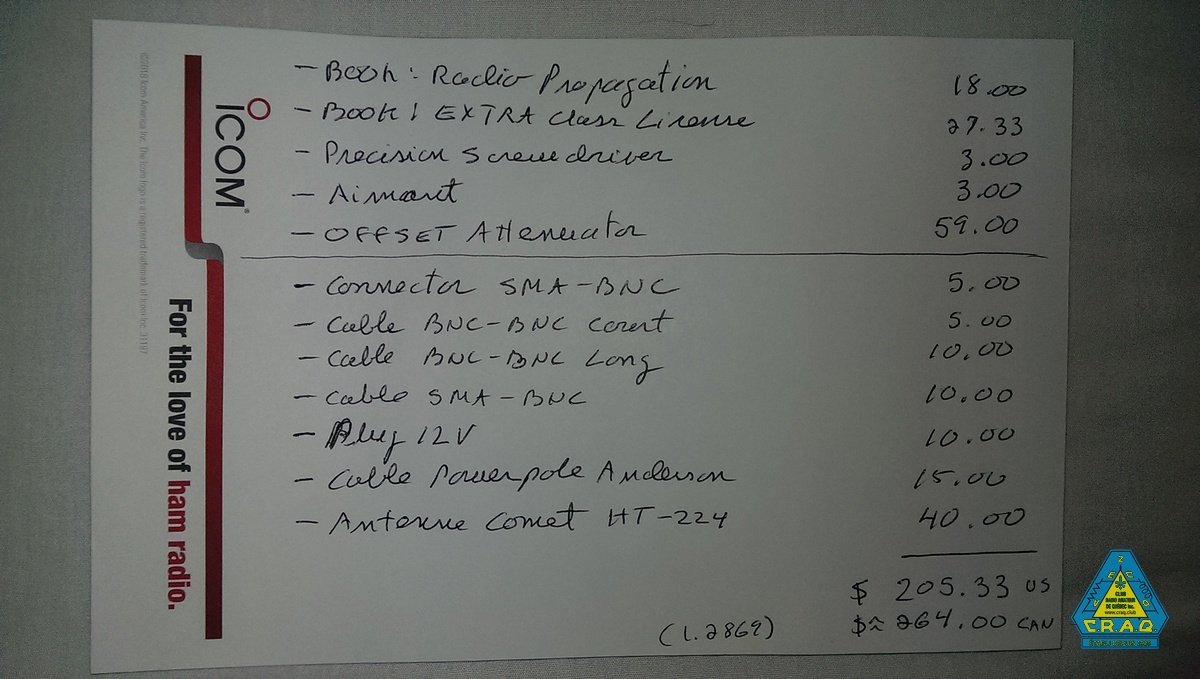 - Book: Radio Propagation 18.00
- Book: EXTRA Class License 27.33
- Precision Screwdriver 3.00
- Aimant 3.00
- OFFSET Attenuator 59.00
- Connector SMA-BNC 5.00
- Cable BNC-BNC Court 5.00
- Cable BNC-BNC Long 10.00
- Cable SMA-BNC 10.00
- Plug 12V 10.00
- Cable Powerpole Anderson 15.00
- Antenne Comet HT-224 40.00
$ 205.33 US
(1.2869) $≈ 264.00 CAN
ICOM®
For the love of ham radio.
CLUB
RADIO AMATEUR
DE QUÉBEC Inc.
www.craq.club
C.R.A.Q.